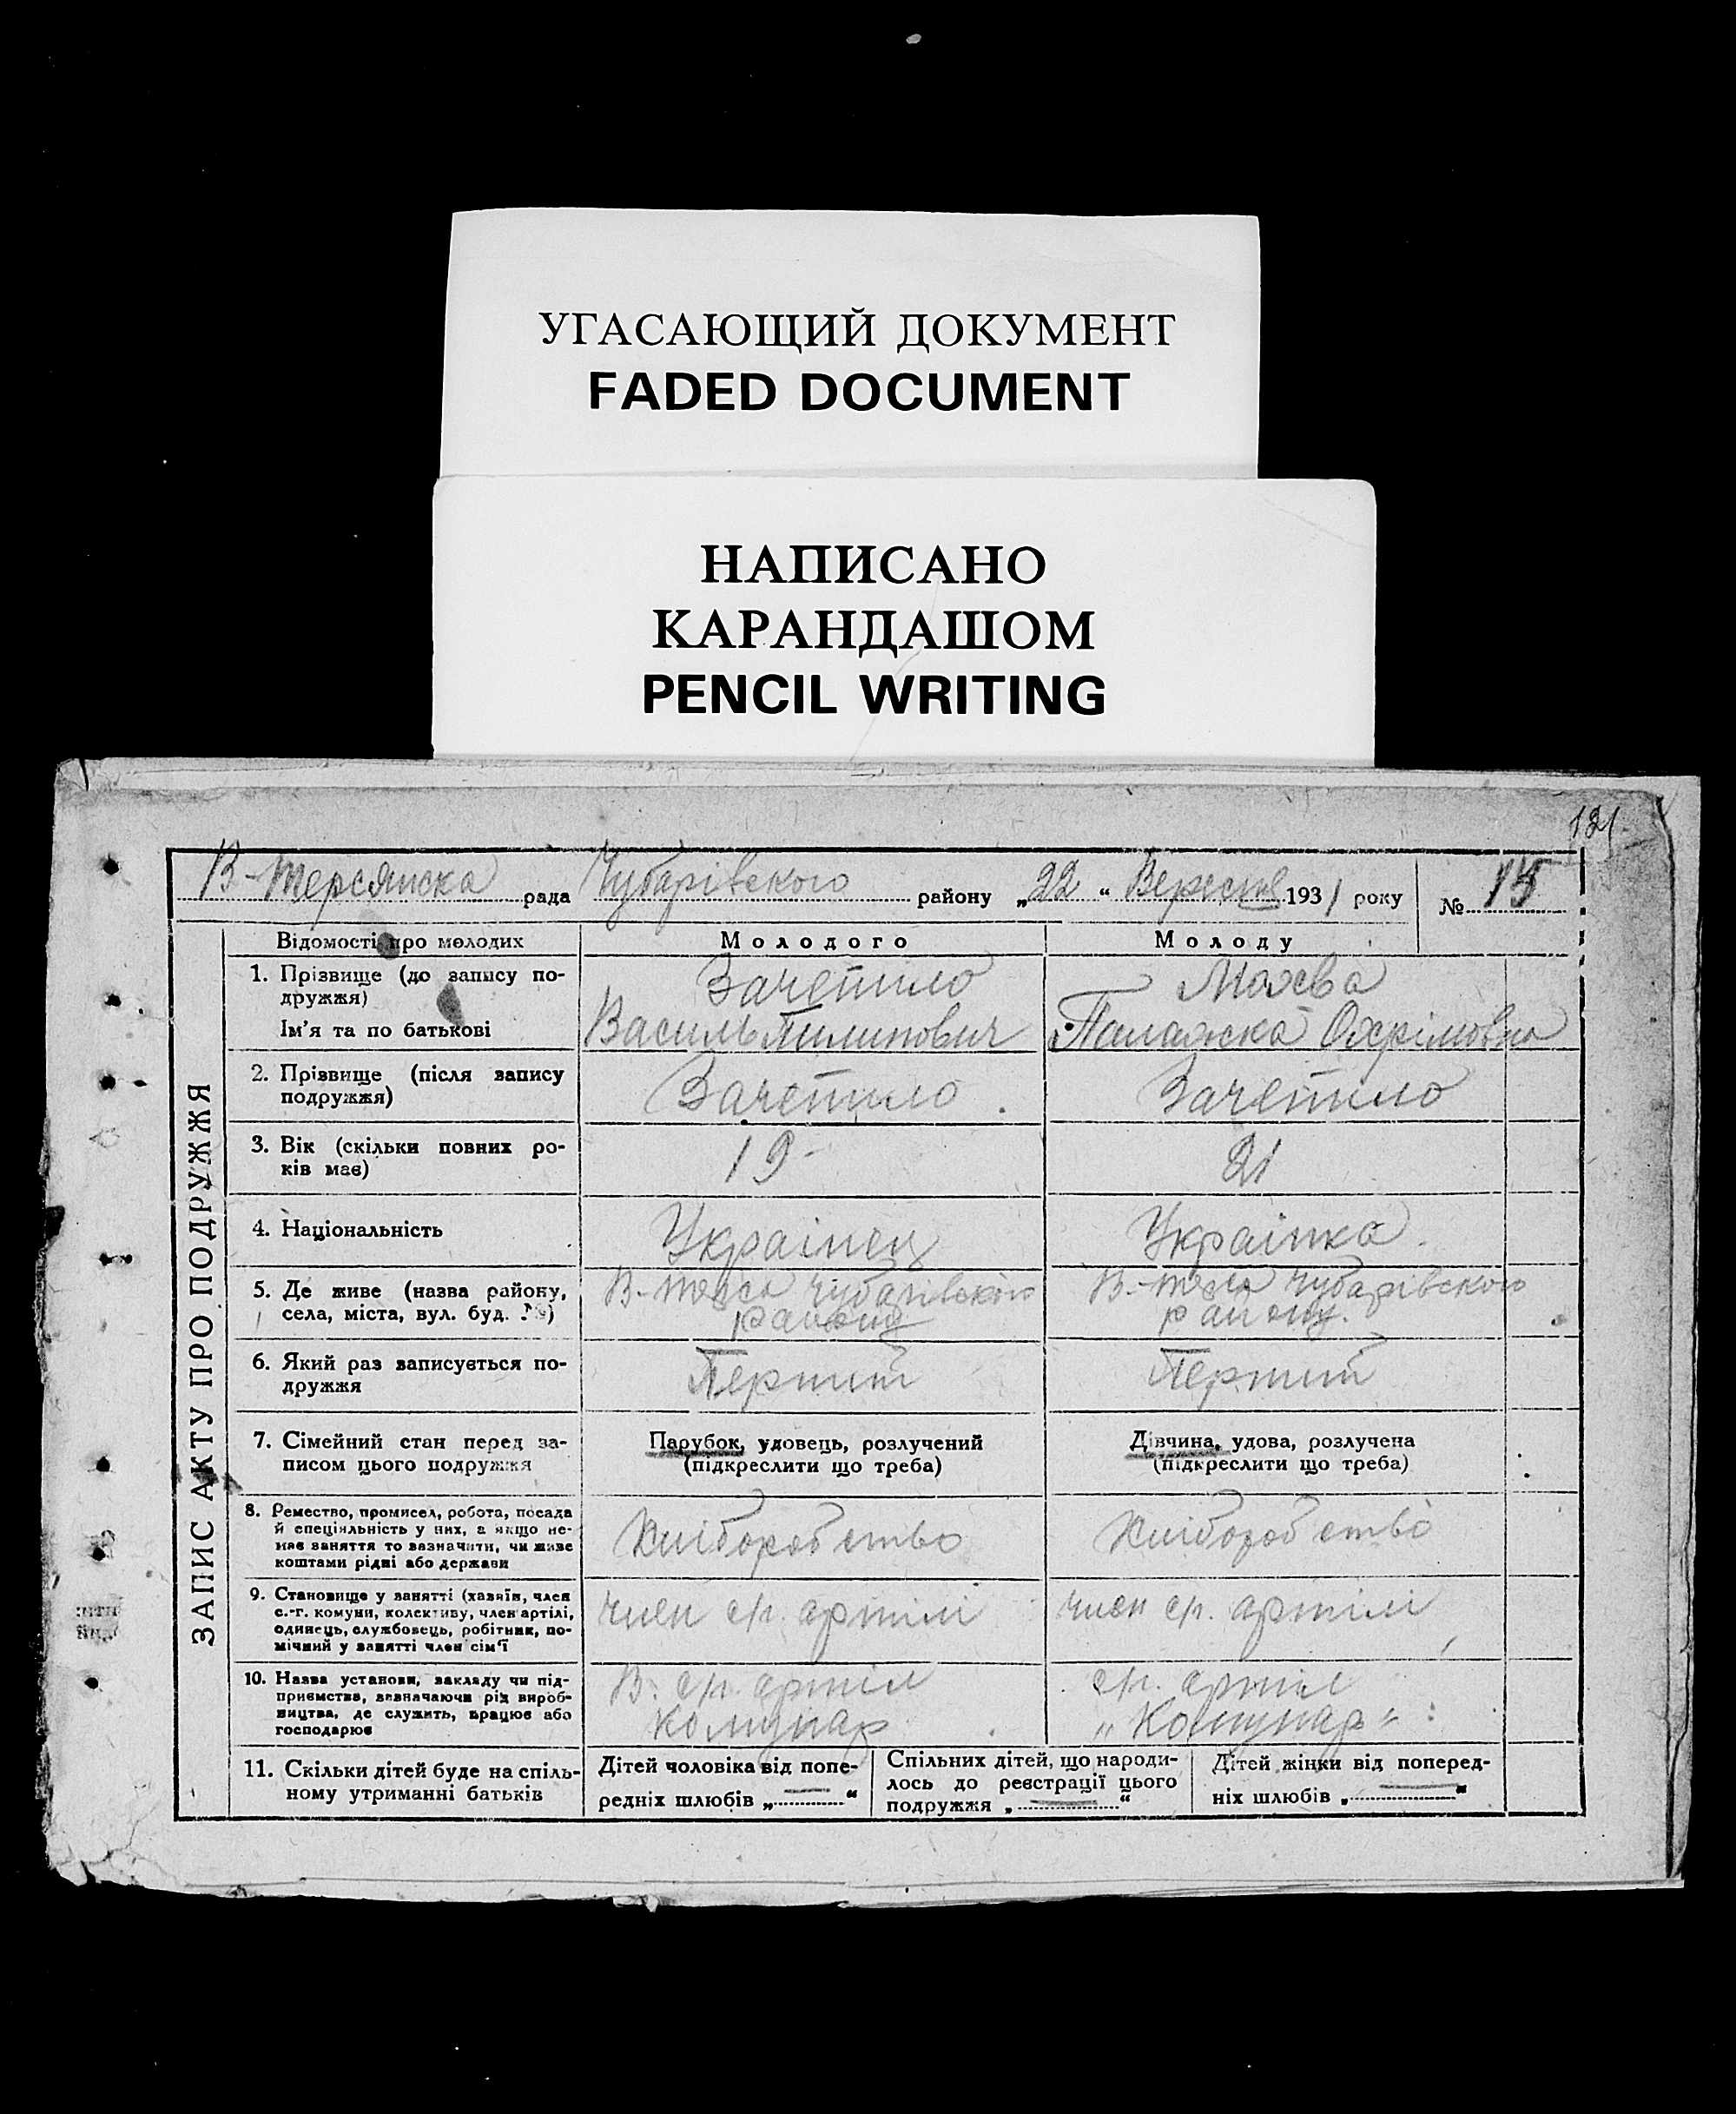 УГАСАЮЩИЙ ДОКУМЕНТ
FADED DOCUMENT
НАПИСАНО
КАРАНДАШОМ
PENCIL WRITING
121
В-Терсянска рада Чубарівського району „22“ Вересня 1931 року № 15
ЗАПИС АКТУ ПРО ПОДРУЖЖЯ
Відомості про молодих
Молодого
Молоду
1. Прізвище (до запису по-
дружжя)
Ім'я та по батькові
Зачепило
Василь Пилипович
Палажка Охрімовна
2. Прізвище (після запису
подружжя)
Зачепило
Зачепило
3. Вік (скільки повних ро-
ків має)
19
21
4. Національність
Українець
Українка
5. Де живе (назва району,
села, міста, вул. буд. №)
В-Терса Чубарівського
району
В-Терса Чубарівського
району.
6. Який раз записується по-
дружжя
Перший
Перший
7. Сімейний стан перед за-
писом цього подружжя
Парубок, удовець, розлучений
(підкреслити що треба)
Дівчина, удова, розлучена
(підкреслити що треба)
8. Ремество, промисел, робота, посада
й спеціяльність у них, а якщо не-
має заняття то зазначити, чи живе
коштами рідні або держави
Хліборобство
Хліборобство
9. Становище у занятті (хазяїн, член
с.-г. комуни, колективу, член артілі,
одинець, службовець, робітник, по-
мічний у занятті член сім'ї
член с/г. артілі
член с/г. артілі
10. Назва установи, закладу чи під-
приємства, зазначаючи рід вироб-
ництва, де служить, працює або
господарює
В. с/г. артіл
комунар
с/г. артіл
„Комунар“
11. Скільки дітей буде на спіль-
ному утриманні батьків
Дітей чоловіка від попе-
редніх шлюбів „ — “
Спільних дітей, що народи-
лось до реєстрації цього
подружжя „ — “
Дітей жінки від поперед-
ніх шлюбів „ — “